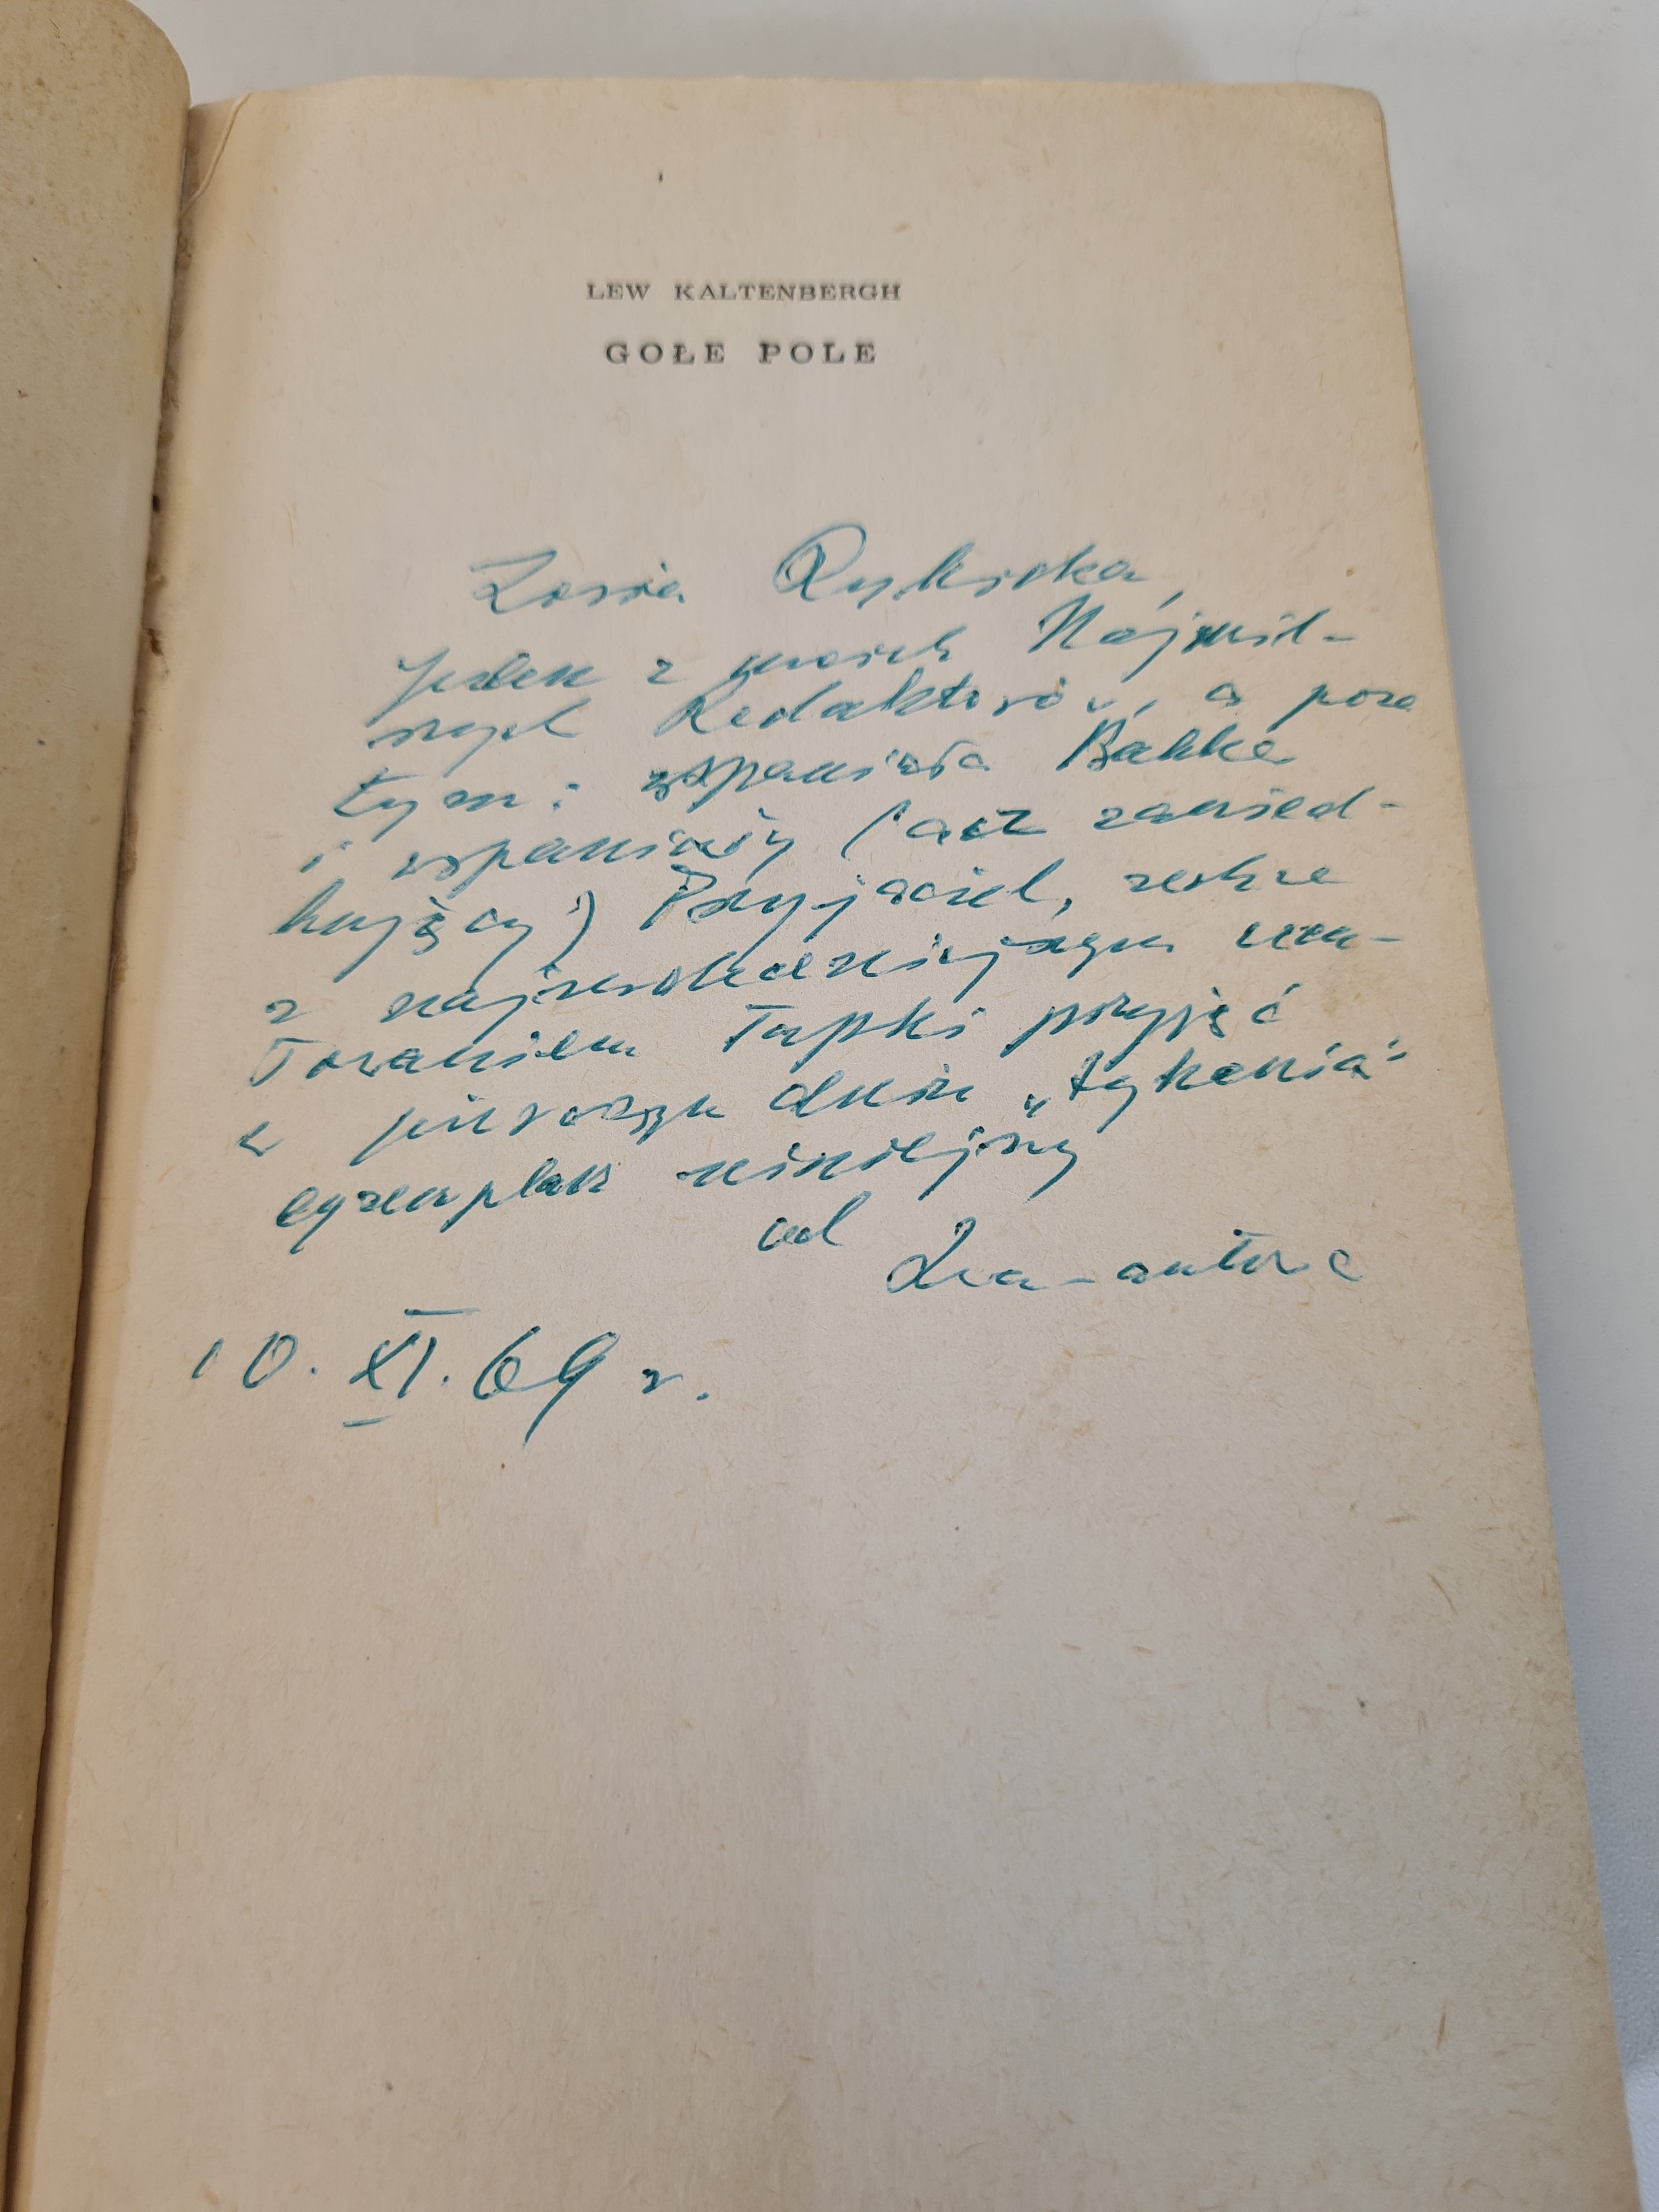 LEW KALTENBERGH
GOŁE POLE
Zosia
jeden z moich Najmil-
szych Redaktorów, a poza
tym: wspaniała Babka
i wspaniały (acz zanied-
bujący) Przyjaciel, zechce
z najserdeczniejszym
łapki przyjąć
w pierwszym dniu „tykania”
egzemplarz niniejszy
od Lwa-autora
10. XI. 69 r.